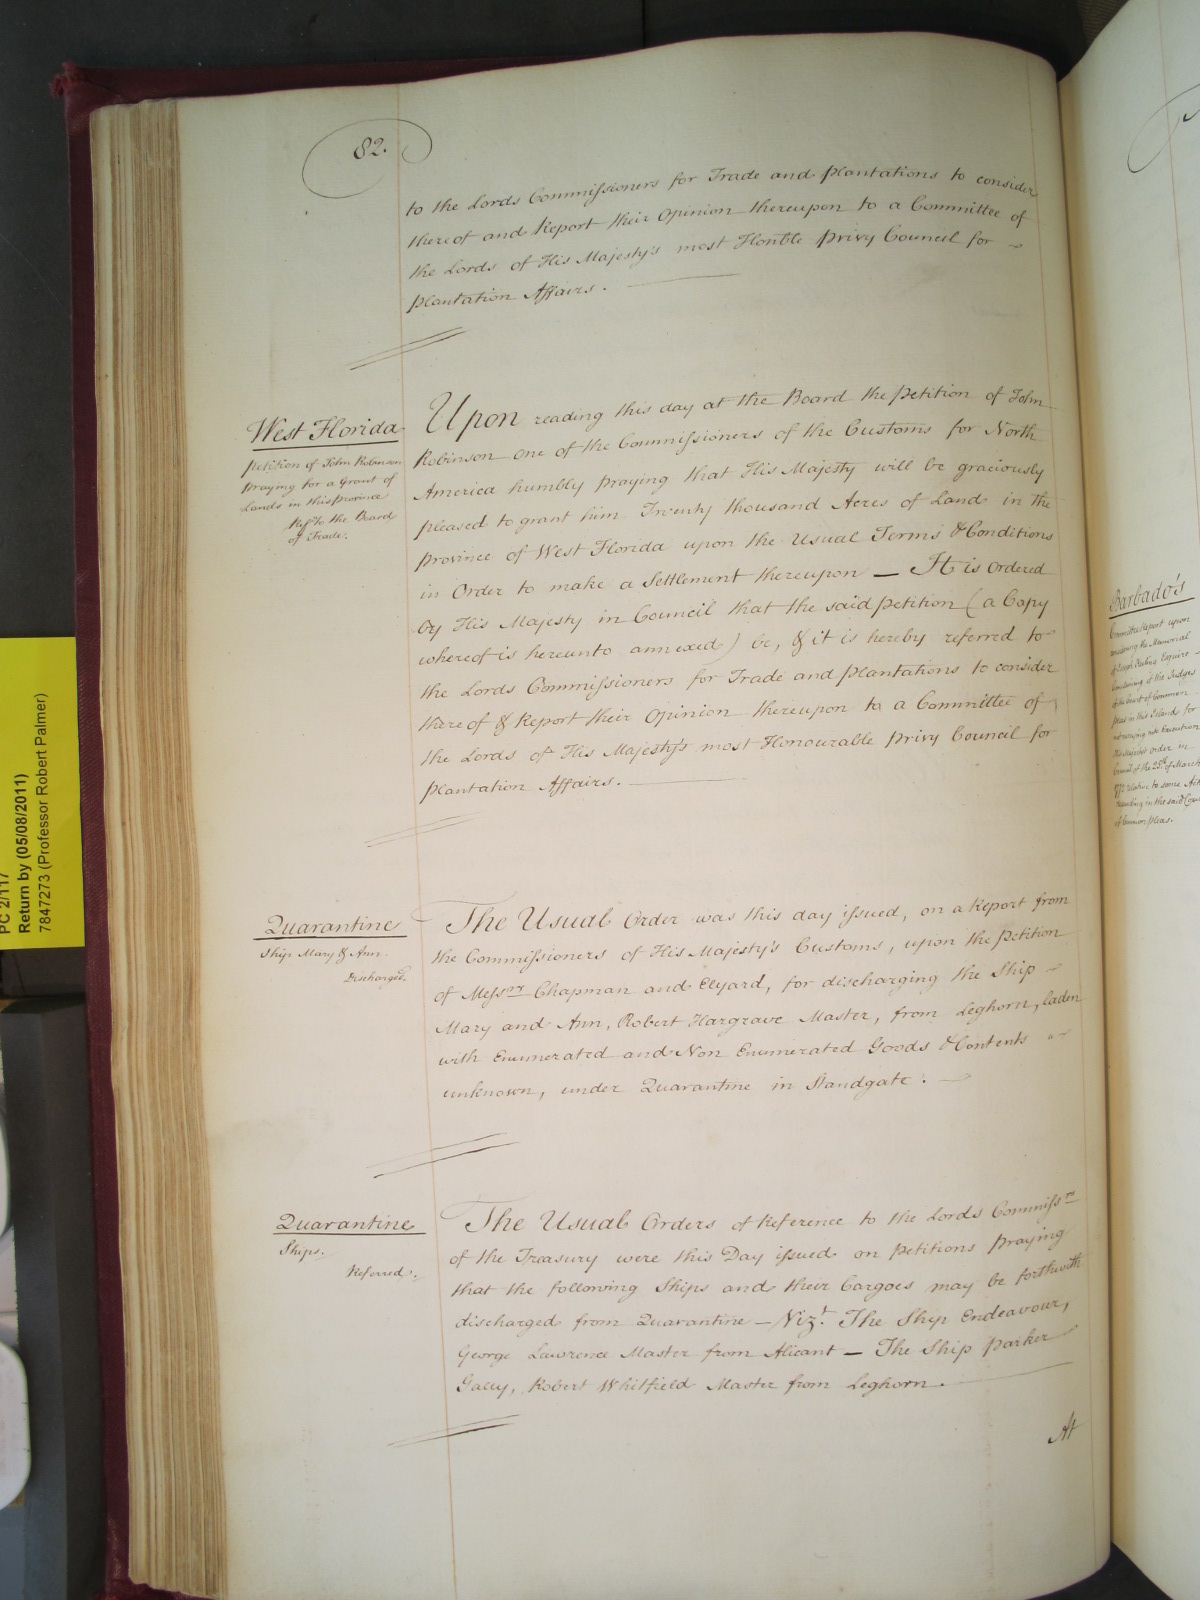 82.
to the Lords Commissioners for Trade and Plantations to consider
thereof and Report their Opinion thereupon to a Committee of
the Lords of His Majesty's most Honble Privy Council for
Plantation Affairs.
West Florida
Petition of John Robinson
praying for a Grant of
Lands in this Province
Refd to the Board
of Trade.
Upon reading this day at the Board the Petition of John
Robinson one of the Commissioners of the Customs for North
America humbly praying that His Majesty will be graciously
pleased to grant him Twenty thousand Acres of Land in the
Province of West Florida upon the Usual Terms & Conditions
in Order to make a Settlement thereupon — It is Ordered
by His Majesty in Council that the said Petition (a Copy
whereof is hereunto annexed) be, & it is hereby referred to
the Lords Commissioners for Trade and Plantations to consider
thereof & Report their Opinion thereupon to a Committee of
the Lords of His Majesty's most Honourable Privy Council for
Plantation Affairs.
Quarantine
Ship Mary & Ann
Discharged.
The Usual Order was this day issued, on a Report from
the Commissioners of His Majesty's Customs, upon the Petition
of Messrs Chapman and Elyard, for discharging the Ship
Mary and Ann, Robert Hargrave Master, from Leghorn, laden
with Enumerated and Non Enumerated Goods & Contents
unknown, under Quarantine in Standgate.
Quarantine
Ships.
Referred.
The Usual Orders of Reference to the Lords Commissrs
of the Treasury were this Day issued on Petitions praying
that the following Ships and their Cargoes may be forthwith
discharged from Quarantine — Vizt. The Ship Endeavour,
George Lawrence Master from Alicant — The Ship Parker
Gally, Robert Whitfield Master from Leghorn.
At
PC 2/117
Return by (05/08/2011)
7847273 (Professor Robert Palmer)
Barbado's
Committee Report upon
considering the Memorial
Esquire
of the Judges
of the Court of Common
Pleas in this Island for
Execution
His Majestys Order in
Council of the 25th of March
relative to some
depending in the said
of Common Pleas.